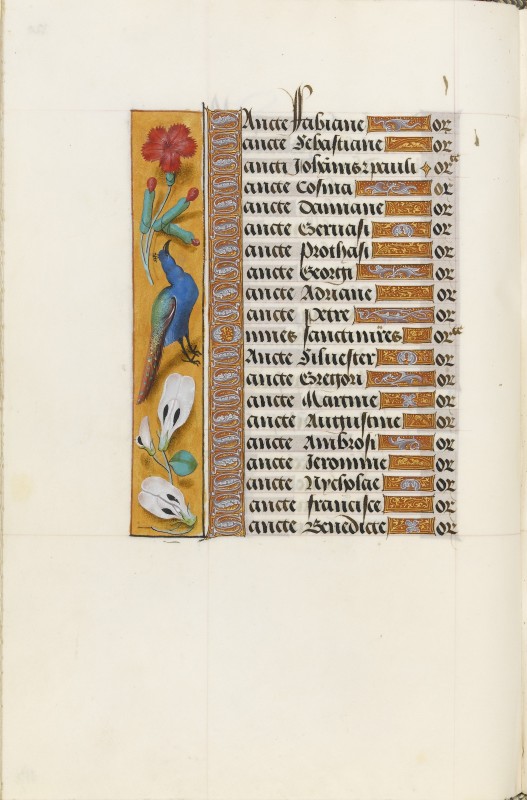 Sancte Fabiane or
Sancte Sebastiane or
Sancti Johānis ⁊ pauli or̄
Sancte Cosma or
Sancte Damiane or
Sancte Geruasi or
Sancte Prothasi or
Sancte Georgi or
Sancte Adriane or
Sancte Petre or
Omnes sancti mr̄es or̄
Sancte Siluester or
Sancte Gregori or
Sancte Martine or
Sancte Augustine or
Sancte Ambrosi or
Sancte Ieronime or
Sancte Nycholae or
Sancte francisce or
Sancte Benedicte or